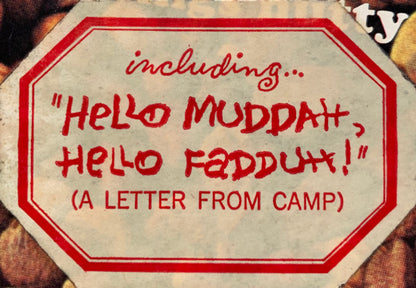 ty
including...
"HELLO MUDDAH,
HELLO FADDUH!"
(A LETTER FROM CAMP)